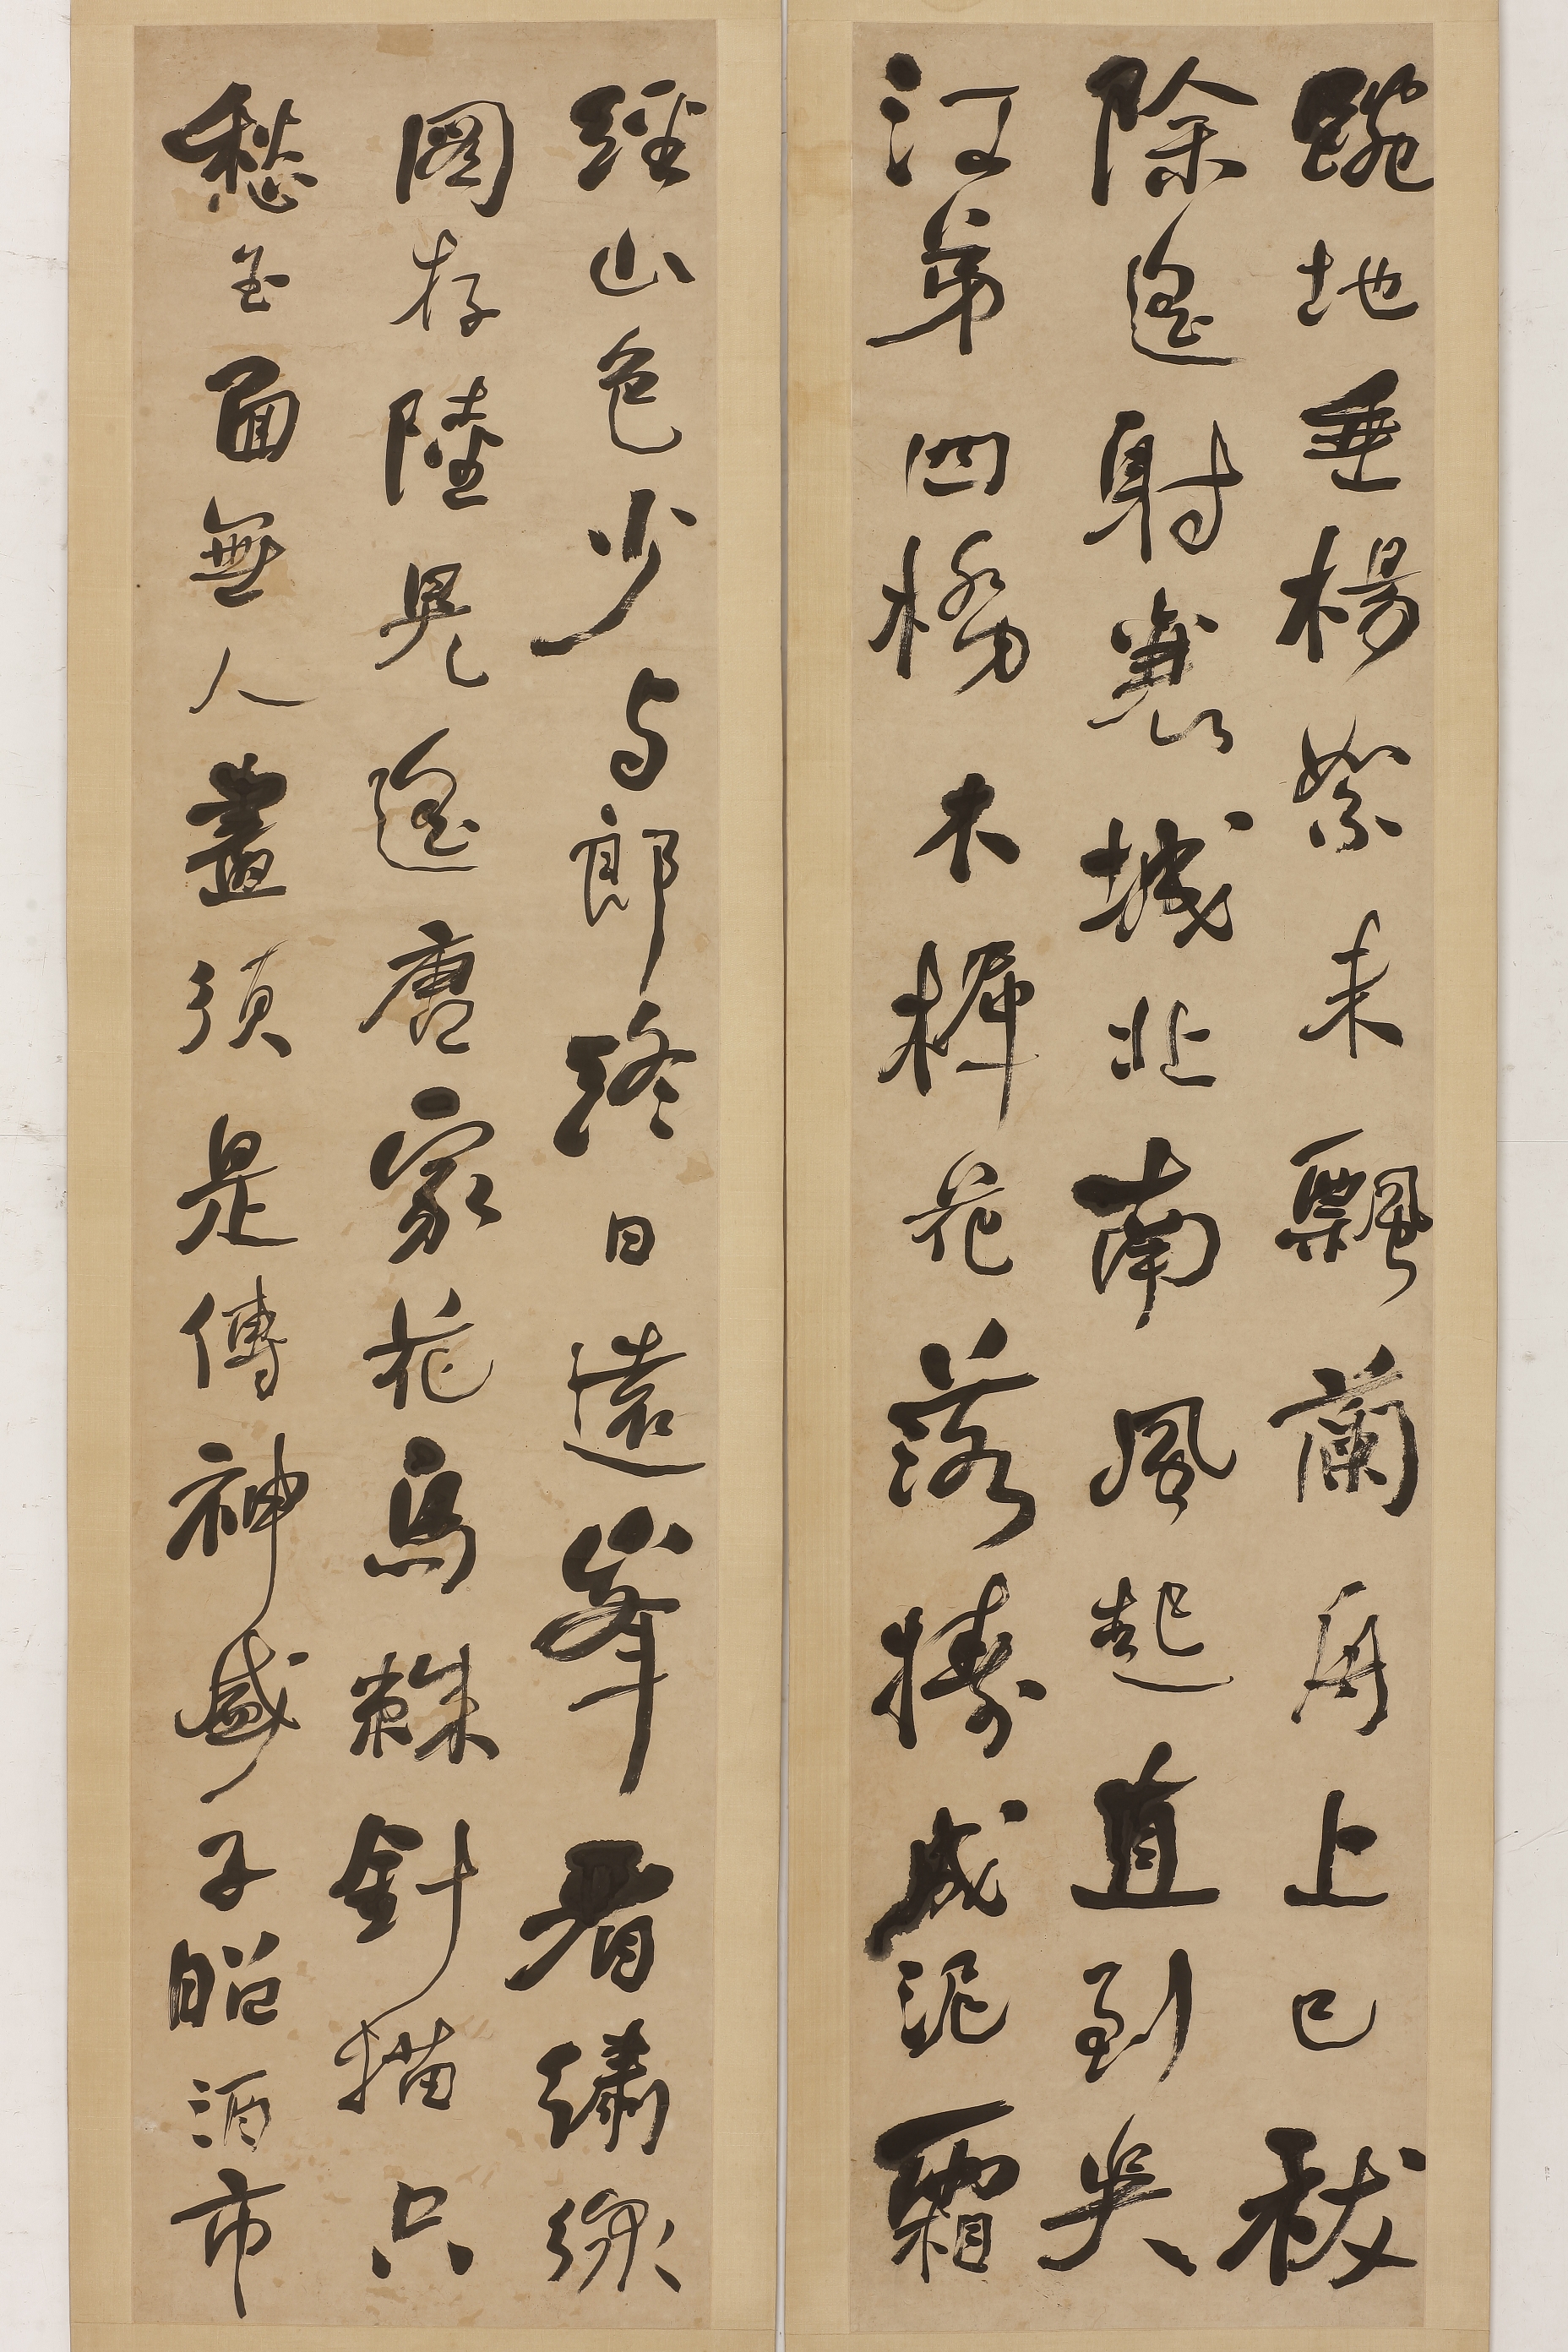 踠地垂楊絮未飄蘭舟上巳祓
除遙射襄城北南風起直到吳
江第四橋木樨花落擣成泥霜
經山色少与郎終日遠峯看繡線
圖存陸晃遙唐家花鳥棘針描只
愁玉面無人畫須是傳神盛子昭酒市